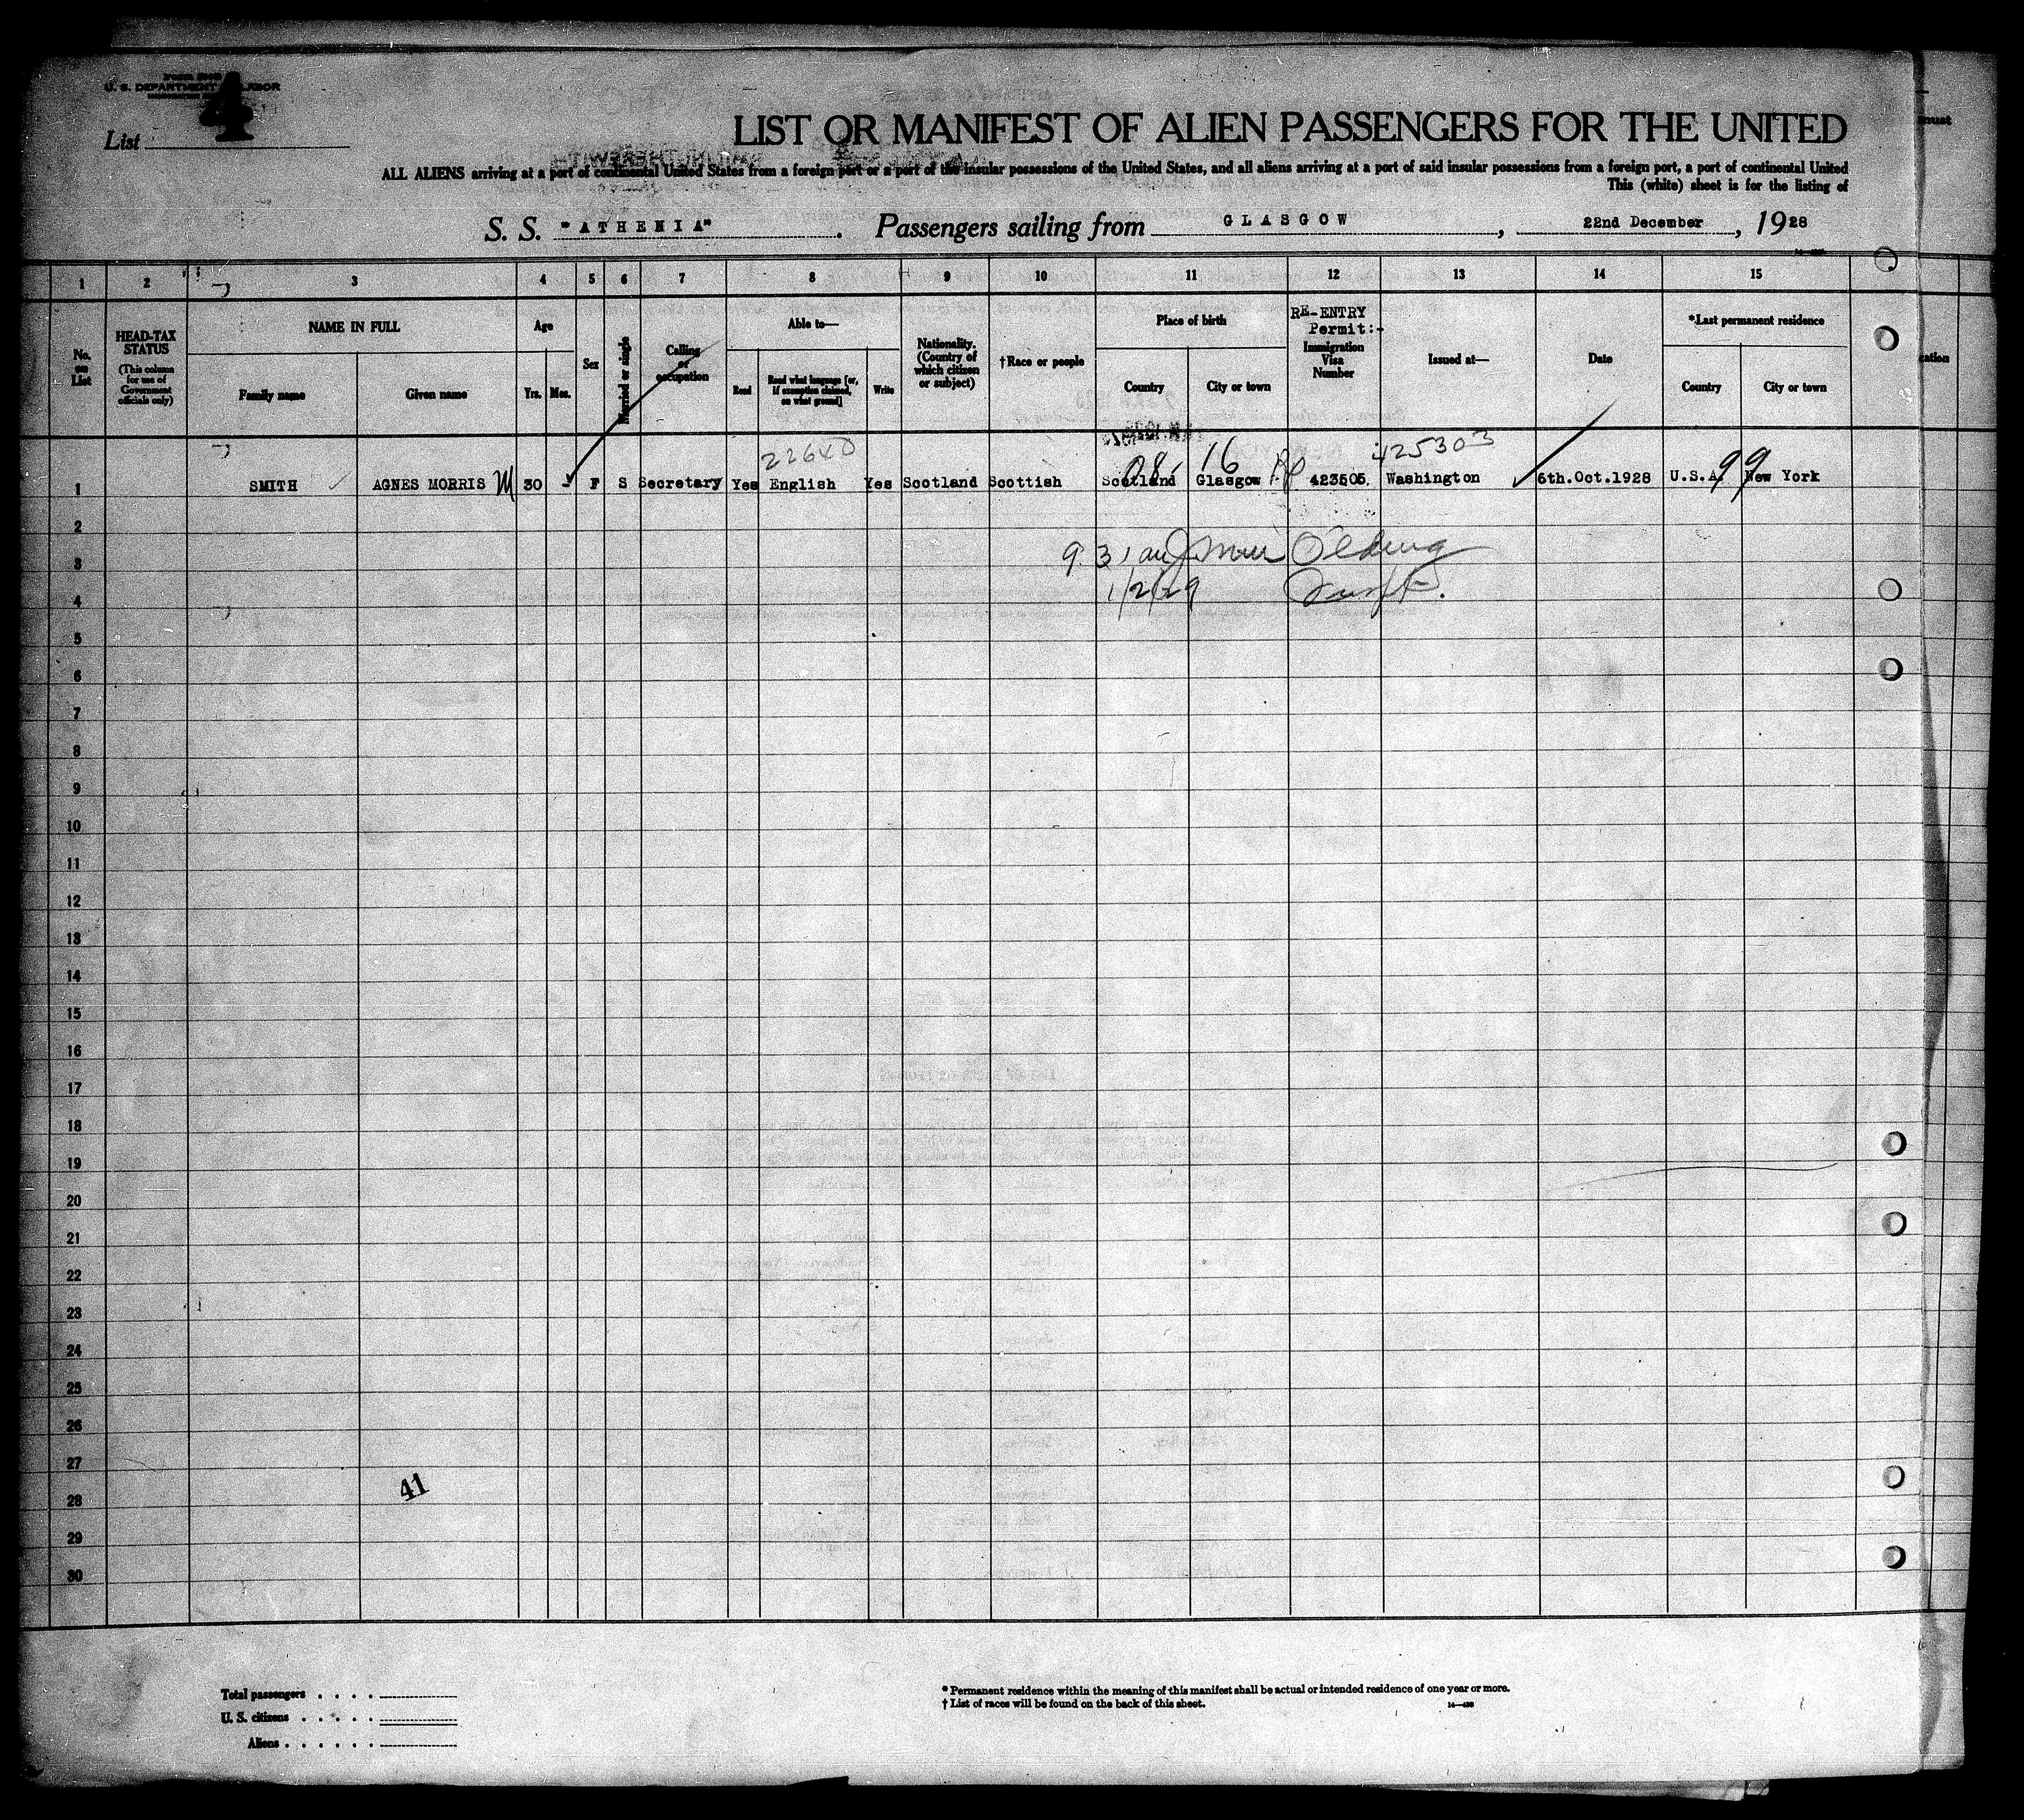 Form
U. S. DEPARTMENT LABOR
4
List
LIST OR MANIFEST OF ALIEN PASSENGERS FOR THE UNITED
ALL ALIENS arriving at a port of continental United States from a foreign port or a port of the insular possessions of the United States, and all aliens arriving at a port of said insular possessions from a foreign port, a port of continental United
This (white) sheet is for the listing of
S. S. "ATHENIA". Passengers sailing from GLASGOW, 22nd December, 1928
1 2 3 4 5 6 7 8 9 10 11 12 13 14 15
No. on List
HEAD-TAX STATUS (This column for use of Government officials only)
NAME IN FULL
Family name
Given name
Age
Yrs. Mos.
Sex
Married or single
Calling or occupation
Able to—
Read
Read what language [or, if exemption claimed, on what ground]
Write
Nationality. (Country of which citizen or subject)
†Race or people
Place of birth
Country
City or town
RE-ENTRY Permit:-
Immigration Visa Number
Issued at—
Date
*Last permanent residence
Country
City or town
must
cation
22640
08 16 425303 99
1 SMITH AGNES MORRIS M 30 - F S Secretary Yes English Yes Scotland Scottish Scotland Glasgow 423505. Washington 6th.Oct.1928 U.S.A. New York
2
3
1/2/29
4
5
6
7
8
9
10
11
12
13
14
15
16
17
18
19
20
21
22
23
24
25
26
27
41
28
29
30
Total passengers . . . .
U. S. citizens . . . . .
Aliens . . . . . .
* Permanent residence within the meaning of this manifest shall be actual or intended residence of one year or more.
† List of races will be found on the back of this sheet.